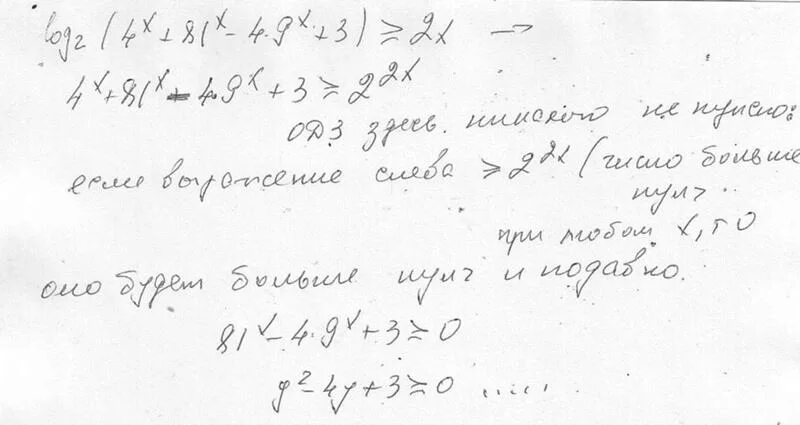 log₂(4ˣ+81ˣ-4·9ˣ+3) ≥ 2x →
4ˣ+81ˣ-4·9ˣ+3 ≥ 2²ˣ
ОДЗ здесь никакого не нужно:
если выражение слева ≥ 2²ˣ (число больше
нуля
при любом x, то
оно будет больше нуля и подавно.
81ˣ-4·9ˣ+3 ≥ 0
y²-4y+3 ≥ 0 .....